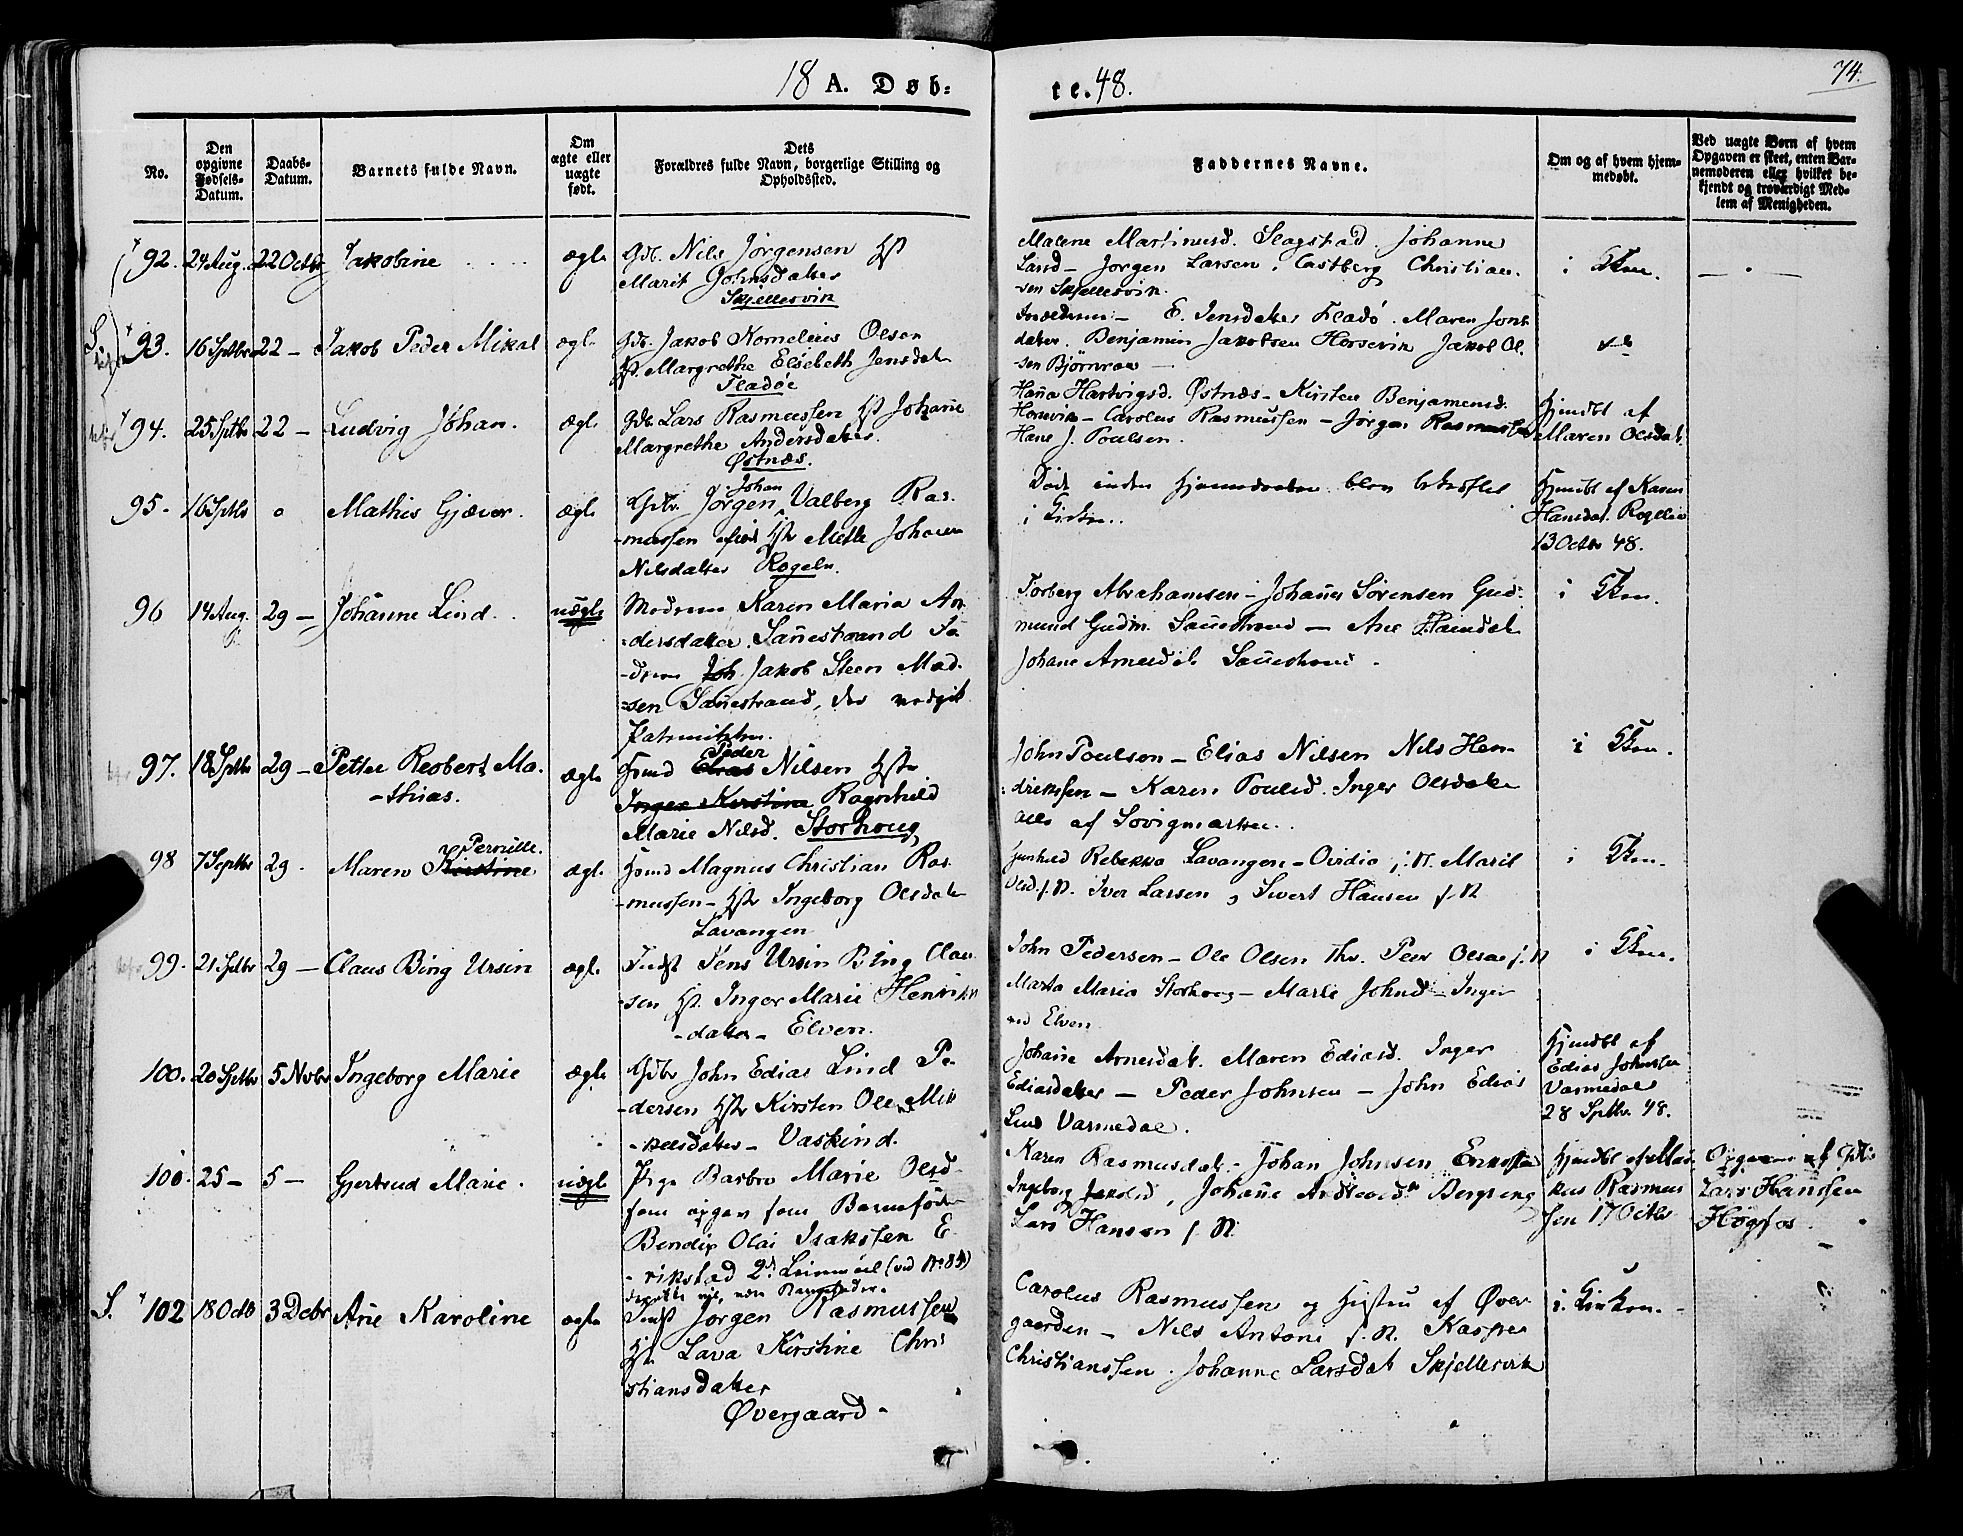 18 A. Døb:
te. 48.
74.
No.
Den opgivne Fødsels-Datum.
Daabs-Datum.
Barnets fulde Navn.
Om ægte eller uægte født.
Dets Forældres fulde Navn, borgerlige Stilling og Opholdssted.
Faddernes Navne.
Om og af hvem hjem-
medøbt.
Ved uægte Børn af hvem
Opgaven er skeet, enten Bar-
nemoderen eller hvilket be-
kjendt og troværdigt Med-
lem af Menigheden.
92. 24 Aug. 22 Octbr Jakobine ægte Gdb. Nils Jörgensen Hst
Marit Johnsdatter
Skjellesvik
Malene Martinusd. Slagstad. Johanne
Lind - Jorgen Larsen, Castberg Christian-
sen Skjellesvik.
i Kken.
S. 93. 16 Septbr 22 - Jakob Peder Mikal ægte Gdb. Jakob Kornelius Olsen
Hst. Margrethe Elisebeth Jensdatter
Fladöe
E. Jensdatter Fladö. Maren Jons
datter. Benjamin Jakobsen Horsevik Jakob Ol.
sen Björnraa
94. 25 Septbr 22 - Ludvig Johan. ægte Gdb. Lars Rasmussen Hst Johanne
Margrethe Andersdatter.
Østnæs.
Hanna Hartvigsd. Østnæs - Kirsten Benjamensd.
Horsevik - Carolus Rasmussen - Jörgen Rasmussen
Hans J. Poulsen.
Hjemdbt af
Maren Olsdat.
95. 16 Septbr o Mathis Gjæver. ægte Gdbr. Jörgen Johan Valberg Ras-
mussen Hst Mette Johanna
Nilsdatter Rogeln.
Död inden blev
i Kirken.
Hjemdbt af Karen
Hansdat. Rogeln
13 Octbr 48.
96 14 Aug. 29 - Johanne Lind. uægte Modren Karen Maria An-
dersdatter. Sannestrand Fa-
dren Joh. Jakob Steen Mad-
sen Sannestrand, der vedgik
Torberg Abrahamsen - Johannes Sörensen Gud-
mund Gudm. Sannestrand - Ane Hansdat
Johanne Arnesdat. Sannestrand.
i Kken.
97. 18 Septbr 29 - Petter Reobert Ma-
-thias. ægte Hsmd Elias Peder Nilsen Hst
Inger Kirstine Ragnhild
Marie Nilsd. Storhoug
John Poulsen - Elias Nilsen Nils Hen-
driksen - Karen Poulsd. Inger Olsdatter
alle af Sovigmarken.
i Kken.
98 7 Septbr 29. Maren Kirstine Pernille. ægte Hsmd Magnus Christian Ras-
mussen - Hst Ingeborg Olsdatter
Lavangen
Gunhild Rebekka Lavangen - Ovidia f. N. Marit
Olsd. f. N. Iver Larsen, Sivert Hansen f. N
i Kken.
99. 21 Septbr 29 - Claus Bing Ursin ægte Indst Jens Ursin Bing Clau-
sen Hst. Inger Marie Henriks
-datter - Elven.
John Pedersen - Ole Olsen Peer Olsen f. N
Marta Maria Storhoug - Marit Johnsd - Inger
Elven
i Kken.
100. 20 Septbr 5 Novbr Ingeborg Marie ægte Gdbr John Edias Lind Pe-
dersen Hst Kirsten Ole Mik
-kelsdatter - Vaskind.
Johanne Arnesdat. Maren Ediasd. Inger
Ediasdatter - Peder Johnsen - John Edias
Lind Varmedal.
Hjemdbt af
Edias Johnsen
Varmedal
28 Septbr. 48.
100. 25 - 5 - Gjertrud Marie. uægte Pige Barbro Marie Olsd
som opgav som Barnefader
Bendix Olai Isaksen E-
-rikstad 2d Leiermaal (vid No 84)
Karen Rasmusdat. - Johan Johnsen
Ingeborg Jakobsd, Johanne Bergseng
Lars Hansen f. N.
Hjemdbt af Mar-
kus Rasmus
sen 17 Octbr
Opgaven af
Lars Hansen
Högfos
S. 102 18 Octb 3 Decbr Ane Karoline ægte Indst Jörgen Rasmussen
Hst. Lava Kirstine Chri
stiansdatter
Øvergaard.
Carolus Rasmussen og Hustru af Øver
gaarden - Nils Antoni f. N. Kasper
Christianssen. Johanne Larsdat Skjellesvik
i Kirken.